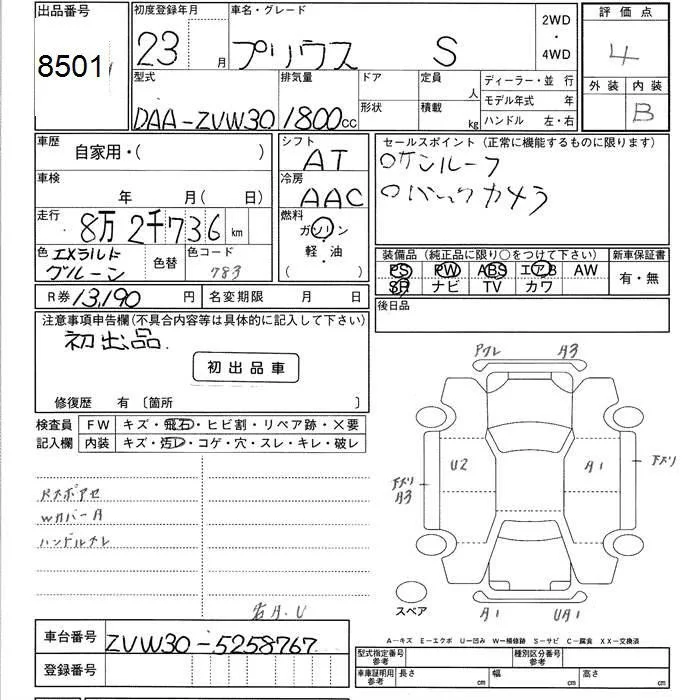 出品番号
8501
初度登録年月
23 月
車名・グレード
プリウス S
2WD
・
4WD
評価点
4
外装 内装
B
型式
DAA-ZVW30
排気量
1800cc
ドア
形状
定員 人
積載 kg
ディーラー・並 行
モデル年式 年
ハンドル 左・右
車歴
自家用・( )
車検
年 月( 日)
走行
8万2千736 km
色 エメラルド
グルーン
色替
色コード
783
シフト
AT
冷房
AAC
燃料
ガソリン
軽・油
( )
セールスポイント (正常に機能するものに限ります)
ロサンルーフ
ロバックカメラ
装備品 (純正品に限り○をつけて下さい)
PS PW ABS エアB AW
SR ナビ TV カワ
新車保証書
有・無
後日品
R券 13,190 円
名変期限 月 日
注意事項申告欄(不具合内容等は具体的に記入して下さい)
初出品.
初出品車
修復歴 有 〔箇所 〕
検査員
記入欄
FW キズ・飛石・ヒビ割・リペア跡・×要
内装 キズ・汚レ・コゲ・穴・スレ・キレ・破レ
Wカバー A
ハンドルスレ
右A.U
A3
U2
A1
下スリ
A3
下スリ
スペア
A1
UA1
A-キズ E-エクボ U-凹み W-補修跡 S-サビ C-腐食 XX-交換済
車台番号 ZVW30-5258767
登録番号
型式指定番号
参考
種別区分番号
参考
車庫証明用
参考
長さ cm 幅 cm 高さ cm